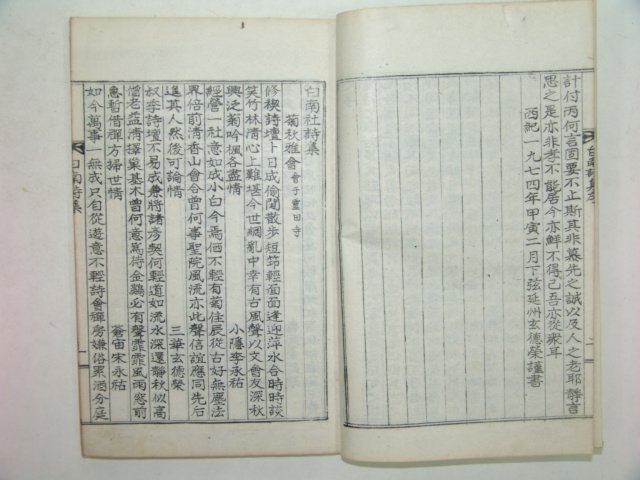 計付丙何言固要不止斯其非慕先之誠以及人之老耶靜言
思之是亦非孝不能居今亦鮮不得己吾亦從衆耳
西紀一九七四年甲寅二月下弦延州玄德榮謹書
白南社詩集
菊秋雅會 會于靈田寺
修稧詩壇卜日成偷閒散步短笻輕面面逢迎萍水合時時談
笑竹林淸心上難堪今世綱亂中幸有古風聲以文會友深秋
興泛菊吟楓各盡情 小隱李永祐
經營一社意如成小白今焉価不輕有菊佳辰從古好無塵法
界倍前淸香山會合曾何事聖院風流亦此聲信誼應同先后
進其人然後可論情 三華玄德榮
叔季詩壇不易成兼將諸勞契何輕道如流水深還靜秋似高
僧老益淸擇巢基木曾何意爲待金鷄必有聲霏霏風雨窓前
急暫借禪方掃世情 蒼宙宋永祐
如今萬事一無成只自從遊意不輕詩會禪房嫌俗累酒分
白南詩集
一